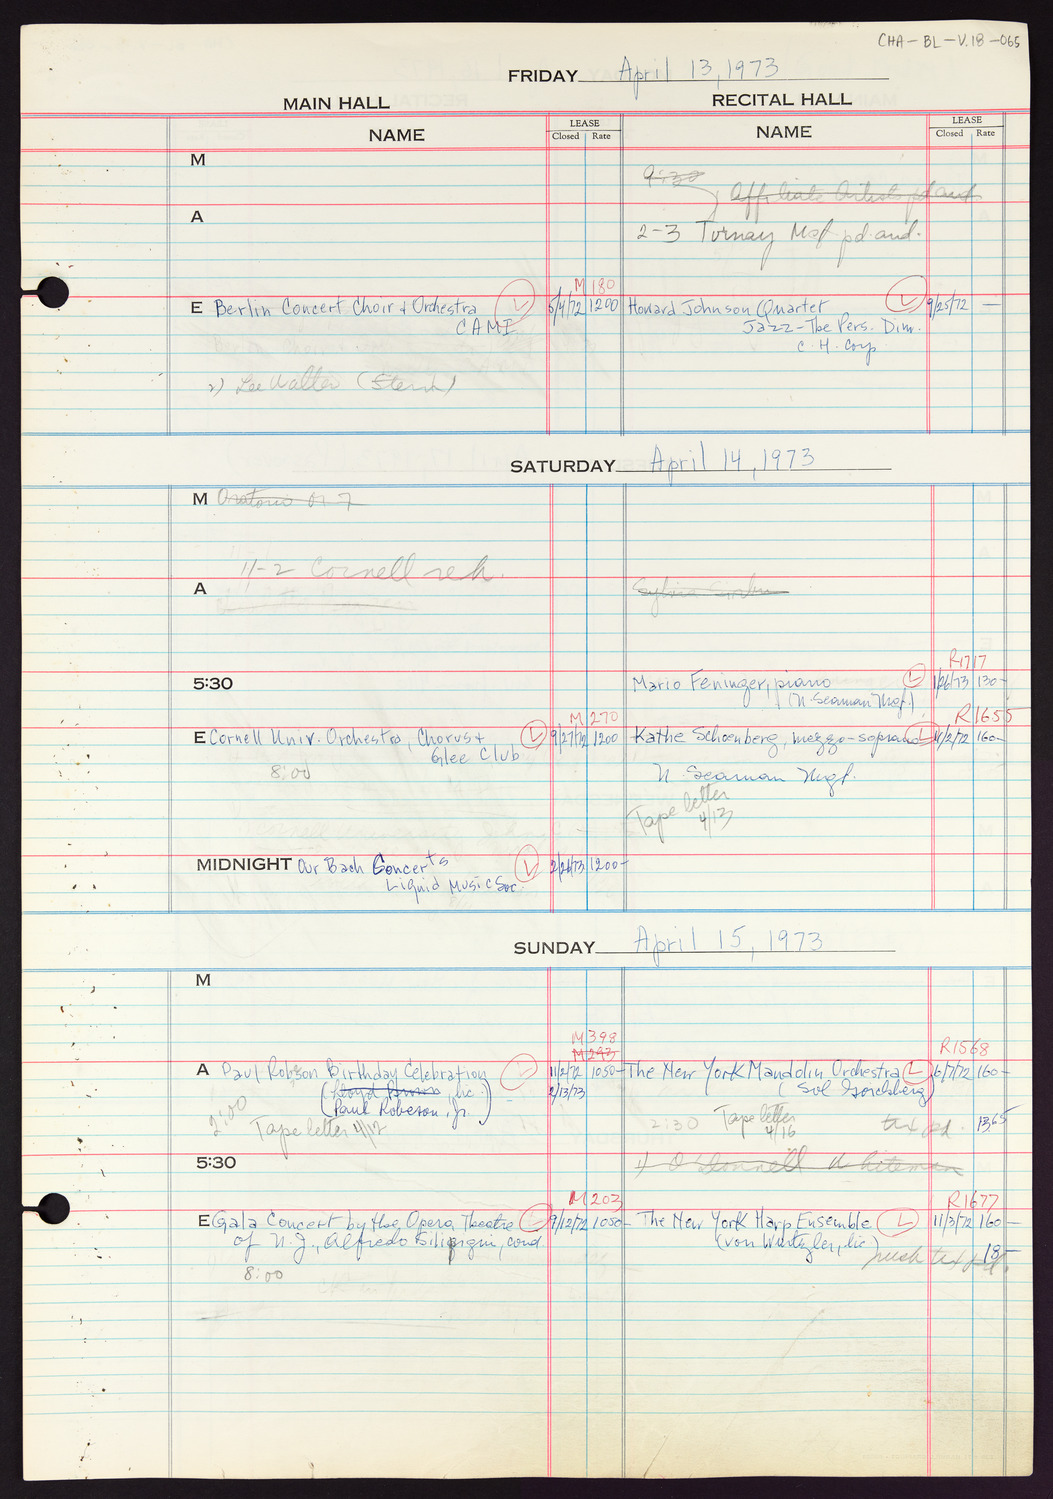 CHA-BL-V.18-065
FRIDAY April 13, 1973
MAIN HALL
RECITAL HALL
NAME
LEASE
Closed Rate
NAME
LEASE
Closed Rate
M
9:30
Affiliate Artists pd aud
A
2-3 Turnay Msf pd. aud.
M 180
E Berlin Concert Choir + Orchestra L 5/4/72 1200
CAMI
Howard Johnson Quartet L 9/25/72 —
Jazz-The Pers. Dim.
C. H. Corp
2) Lee Walter (Stern)
SATURDAY April 14, 1973
M Oratorio
11-2 Cornell reh.
A
Sylvia
R1717
5:30
Mario Feninger, piano L 1/26/73 130-
(N. Seaman Mgt.)
M 270
R1655
E Cornell Univ. Orchestra, Chorus + L 9/27/72 1200
Glee Club
8:00
Kathe Schoenberg, mezzo-soprano L 11/2/72 160-
N. Seaman Mgt.
Tape letter
4/13
MIDNIGHT Our Bach Concerts L 2/26/73 1200-
Liquid Music Soc.
SUNDAY April 15, 1973
M
M398
M293
R1568
A Paul Robson Birthday Celebration L 11/2/72 1050-
(Lloyd Brown, lic.)
2/13/73
(Paul Robeson, Jr.)
2:00
Tape letter 4/12
The New York Mandolin Orchestra L 6/7/72 160-
(Sol Goichberg)
2:30 Tape letter
4/16
tax pd. 13.65
5:30
1) O'Donnell Whiteman
M203
R1677
E Gala Concert by the Opera Theatre L 9/12/72 1050-
of N.J., Alfredo Silipigni, cond.
8:00
The New York Harp Ensemble L 11/3/72 160-
(von Wurtzler, lic.)
18-